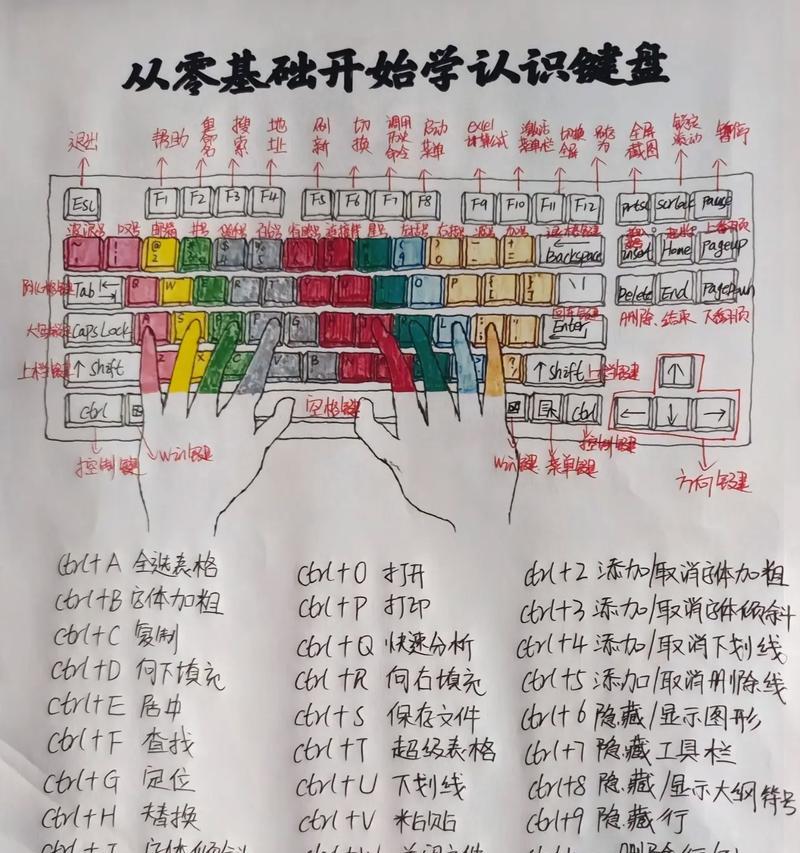 从零基础开始学认识键盘
退出 帮助 重命名 搜索 地址 刷新 切换 调用历史命令 启动菜单 excel计算公式 激活菜单栏 切换全屏 另存为 全屏截图 锁定滚动 暂停
Esc F1 F2 F3 F4 F5 F6 F7 F8 F9 F10 F11 F12 prtsc scrlock pause
波浪号 叹号 邮箱 井号 百分号 星号 左括号 右括号 加号 退格键 上翻页
Backspace insert Home Pageup
Tab Q W E R T O P Delete End Pagedown
删除 结束 下翻页
Caps Lock A S G L Enter
上档键 ↑ shift Z X C V B ↑ shift 上档键 ↑
ctrl 空格键 ctrl ← ↓ →
控制键 Win键 Win键 菜单键 控制键 方向键
ctrl+A 全选表格
ctrl+B 字体加粗
ctrl+C 复制
ctrl+D 向下填充
ctrl+E 居中
ctrl+F 查找
ctrl+G 定位
ctrl+H 替换
ctrl+I 字体倾斜
ctrl+O 打开
ctrl+P 打印
ctrl+Q 快速分析
ctrl+R 向右填充
ctrl+S 保存文件
ctrl+T 超级表格
ctrl+U 下划线
ctrl+V 粘贴
ctrl+2 添加/取消字体加粗
ctrl+3 添加/取消字体倾斜
ctrl+4 添加/取消下划线
ctrl+5 添加/取消删除线
ctrl+6 隐藏/显示图形
ctrl+7 隐藏工具栏
ctrl+8 隐藏/显示大纲符号
ctrl+9 隐藏行